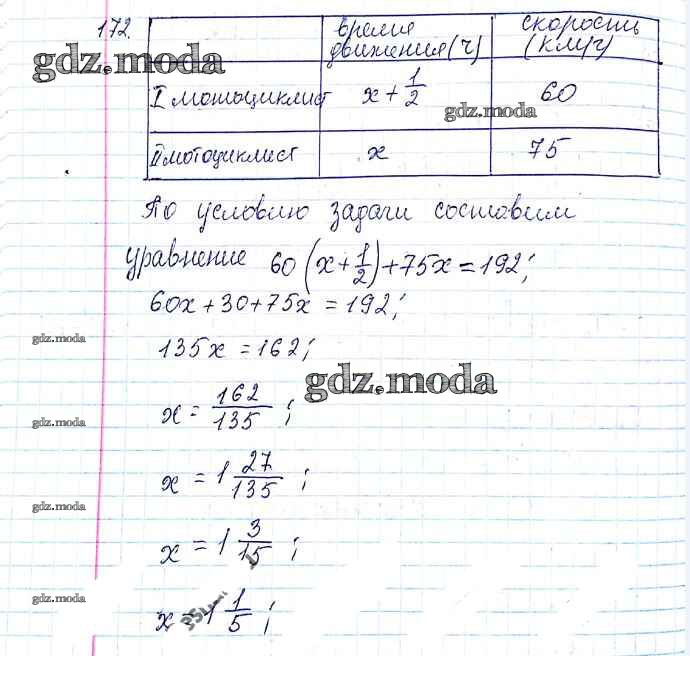 172.
время движения (ч)
скорость (км/ч)
I мотоциклист x + 1/2 60
II мотоциклист x 75
По условию задачи составим
уравнение 60(x + 1/2) + 75x = 192;
60x + 30 + 75x = 192;
135x = 162;
x = 162/135;
x = 1 27/135;
x = 1 3/15;
x = 1 1/5;
gdz.moda
gdz.moda
gdz.moda
gdz.moda
gdz.moda
gdz.moda
gdz.moda